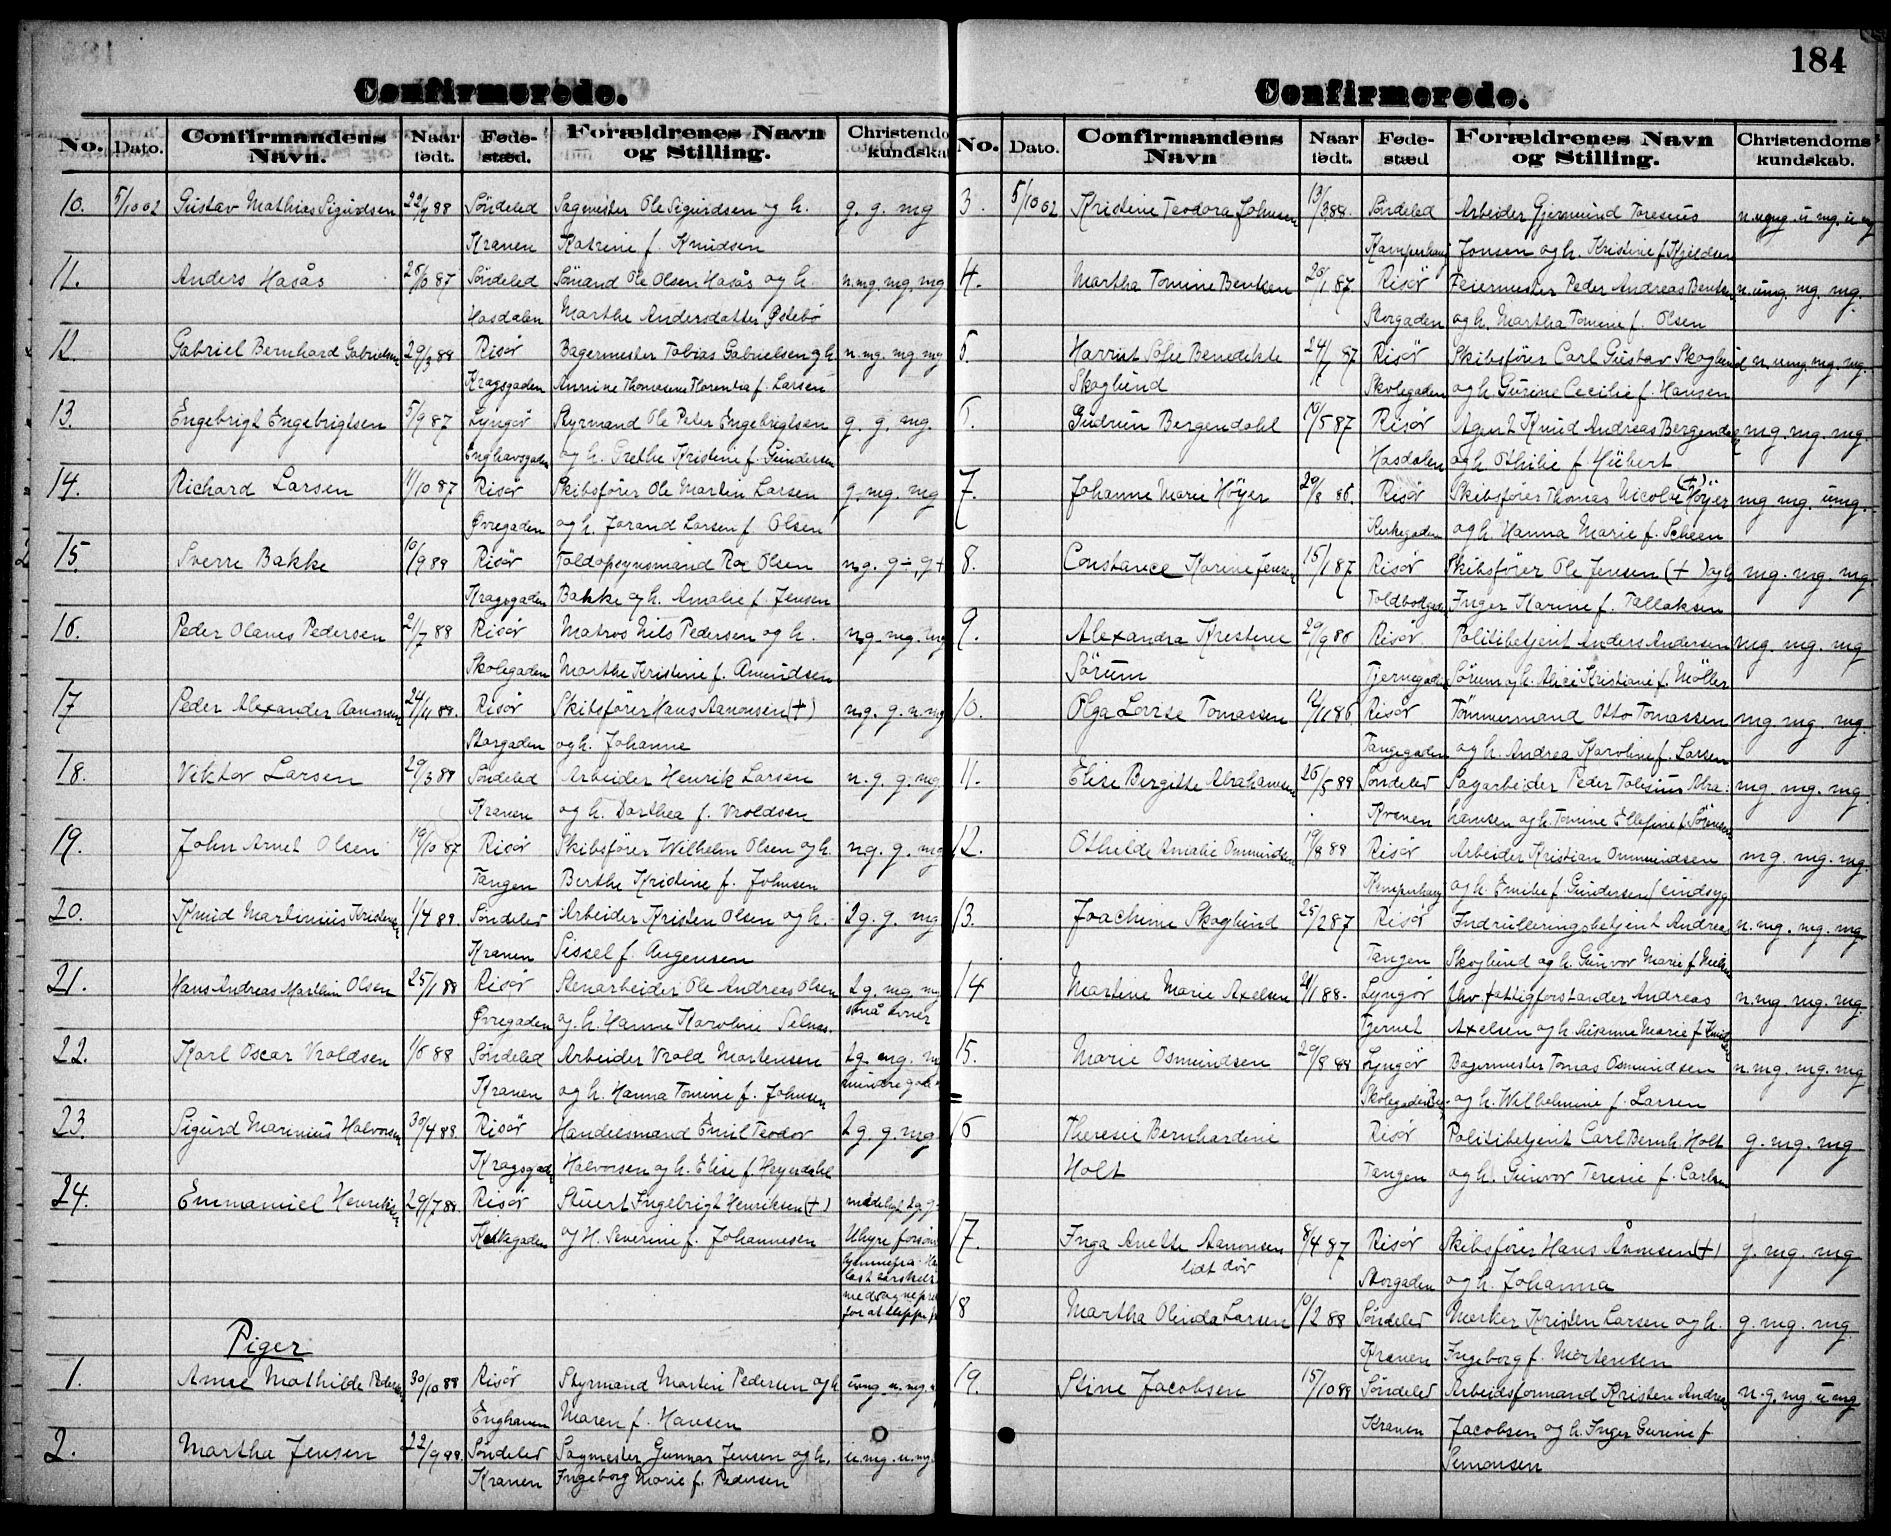 184
Confirmerede.
No. Dato. Confirmandens Navn. Naar født. Føde-stæd. Forældrenes Navn og Stilling. Christendo kundskab
10. 5/10 02 Gustav Mathias Sigurdsen 22/7 88 Söndeled Sagmester Ole Sigurdsen og h. g. g. mg
Kranen Katrine f. Knudsen
11. Anders Hasås 87 Söndeled Sömand Ole Olsen Hasås og h. n. mg. mg. mg
Hasdalen Marthe Andersdatter Østebö
12. Gabriel Bernhard Gabrielsen 29/3 88 Risör Bagermester Tobias Gabrielsen og h. n. mg. mg mg
Kragsgaden Annine Thomasine Florentea f. Larsen
13. Engebrigt Engebrigtsen 5/9 87 Lyngör Styrmand Ole Peter Engebrigtsen g. g. mg.
Enghavsgaden og h. Grethe Kristine f. Gundersen
14. Richard Larsen 11/10 87 Risör Skibsförer Ole Martin Larsen g. mg. mg
Øvregaden og h. Jorand Larsen f. Olsen
15. Sverre Bakke 10/9 89 Risör Toldopsynsmand Olsen ng. g÷ g+
Kragsgaden Bakke og h. Amalie f. Jensen
16. Peder Olaves Pedersen 21/7 88 Risör Matros Nils Pedersen og h. ng. mg. mg
Skolegaden Marthe Kristine f. Amundsen
17 Peder Alexander Aanonsen 24/11 88. Risör Skibsförer Hans Aanonsen (+) ng. g. n. mg
Storgaden og h. Johanne
18. Viktor Larsen 29/3 88 Söndeled Arbeider Henrik Larsen n. g. g. ng.
Kranen og h. Dorthea f. Vroldsen
19. John Arnet Olsen 19/10 87 Risör Skibsförer Wilhelm Olsen og h. ng. g. mg
Tangen Berthe Kristine f. Johnsen
20. Knud Martinius Kristensen 1/4 88. Söndeled Arbeider Kristen Olsen og h. 2 g. g. mg
Kranen Sissel f. Augensen
21. Hans Andreas Marthin Olsen 25/1 88 Risör Stenarbeider Ole Andreas Olsen 2 g. mg. m
Øvregaden og h. Hanne Karoline Selnes. små evner
22. Karl Oscar Vroldsen 1/6 88 Söndeled Arbeider Vrold Mortensen 2 g. mg. mg
Kranen og h. Hanna Tomine f. Johnsen mindre gode
23. Sigurd Marenius Halvorsen 30/4 88. Risör Handelsmand Emil Teodor 2 g. g. mg
Kragsgad Halvorsen og h. Elise f. Heyerdahl
24. Emmanuel Henriksen 29/7 88. Risör Stuert Ingebrigt Henriksen (+)
Kirkegaden og H. Severine f. Johannesen Uhyre forsöm
Piger
1. Anne Mathilde Pedersen 30/10 88 Risör Styrmand Martin Pedersen og h. umg. n. mg.
Enghaven Maren f. Hansen
2. Marthe Jensen 22/9 88. Söndeled Sagmester Gunnar Jensen og h. u. mg. u. mg
Kranen Ingeborg Marie f. Pedersen
Confirmerede.
No. Dato. Confirmandens Navn Naar født. Føde-stæd Forældrenes Navn og Stilling. Christendoms kundskab.
3. 5/10 02 Kristine Teodora Johnsen 13/3 88. Söndeled Arbeider Gjermund Toresius
Kamperhaug Jonsen og h. Kristine f. Kjeldsen
4. Martha Tomine Bentsen 87. Risör Feiermester Peder Andreas Bentsen n. umg. mg. mg.
Storgaden og h. Martha Tomine f. Olsen
5. Harriet Sofie Benedikte 24/ 87 Risör Skibsförer Carl Gustav Skoglund n. umg mg. mg.
Skoglund Skolegaden og h. Gurine Cecilie f. Hansen
6. Gudrun Bergendahl 10/5 87 Risör Agent Knud Andreas Bergendahl mg. mg. mg.
Hasdalen og h. Othilie f. Hübert
7. Johanne Marie Höyer 20/8 86. Risör Skibsförer Thomas Nicolai (+) Höyer mg mg. umg.
Kirkegaden og h. Hanna Marie f. Scheen
8. Constance Karine Jensen 15/1 87 Risör Skibsförer Ole Jensen (+) og h. mg. mg. mg.
Toldbodgad Inger Karine f. Tallaksen
9. Alexandra Kristine 29/9 86 Risör. Politibetjent Anders Andersen mg mg. mg
Sörum Tjernegaden Sörum og h. Kristiane f. Möller
10. Olga Lovise Tomassen 12/11 86 Risör Tömmermand Otto Tomassen mg mg. mg.
Tangegaden og h. Andrea Karoline f. Larsen
11. Elise Bergitte Abrahamsen 88 Söndeled Sagarbeider Peder Tobesius Abra- mg. mg. mg.
Kranen hamsen og h. Tomine Ellefine f. Sörensen
12. Othilde Amalie Ommundsen 19/8 88 Risör Arbeider Kristian Ommundsen mg. mg. mg.
Kamperhaug og h. Emilie f. Gundersen (sindsyg
13. Joachime Skoglund 25/2 87 Risör Indrulleringsbetjent Andreas n. mg. mg. mg
Tangen Skoglund og h. Gunvor Marie f. Nielsen
14 Martine Marie Axelsen 21/1 88. Lyngör Uhv. fattigforstander Andreas n. mg mg. mg.
Tjernet Axelsen og h. Susanne Marie f. Knudsen
15. Marie Osmundsen 29/8 88 Lyngör Bagermester Tomas Osmundsen n. mg. mg. mg
Skolegaden og h. Wilhelmine f. Larsen
16 Theresie Bernhardine Risör Politibetjent Carl Bernh. Holt g. mg. mg
Holt Tangen og h. Gunvor Teresie f. Carlsen
17. Inga Anette Aanonsen 8/4 87 Risör Skibsförer Hans Ånonsen (+) g. mg. mg
lidt döv Storgaden og h. Johanna
18 Martha Olinda Larsen 10/2 88 Söndeled Mærker Kristen Larsen og h. g. mg. mg
Kranen Ingeborg f. Mortensen
19. Stine Jacobsen 15/10 88 Söndeled Arbeidsformand Kristen Andreas n. g. mg. u mg
Kranen Jacobsen og h. Inger Gurine f
Simonsen